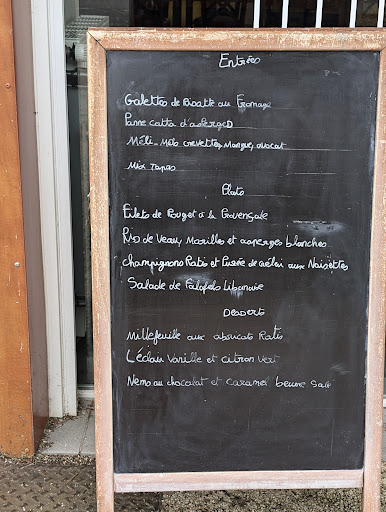 Entrées
Galettes de Boatte au Fromage
Panne catta d'asperges
Méli-Melo crevettes, Mangue, avocat
Mix Tapas
Plats
Filets de Rouget à la Provençale
Ris de Veau, Morilles et asperges blanches
Champignons Rotis et Purée de Céleri aux Noisettes
Salade de Falafels Libanaise
Desserts
Millefeuille aux abricots Rotis
L'éclair Vanille et citron vert
Nems au chocolat et caramel beurre salé